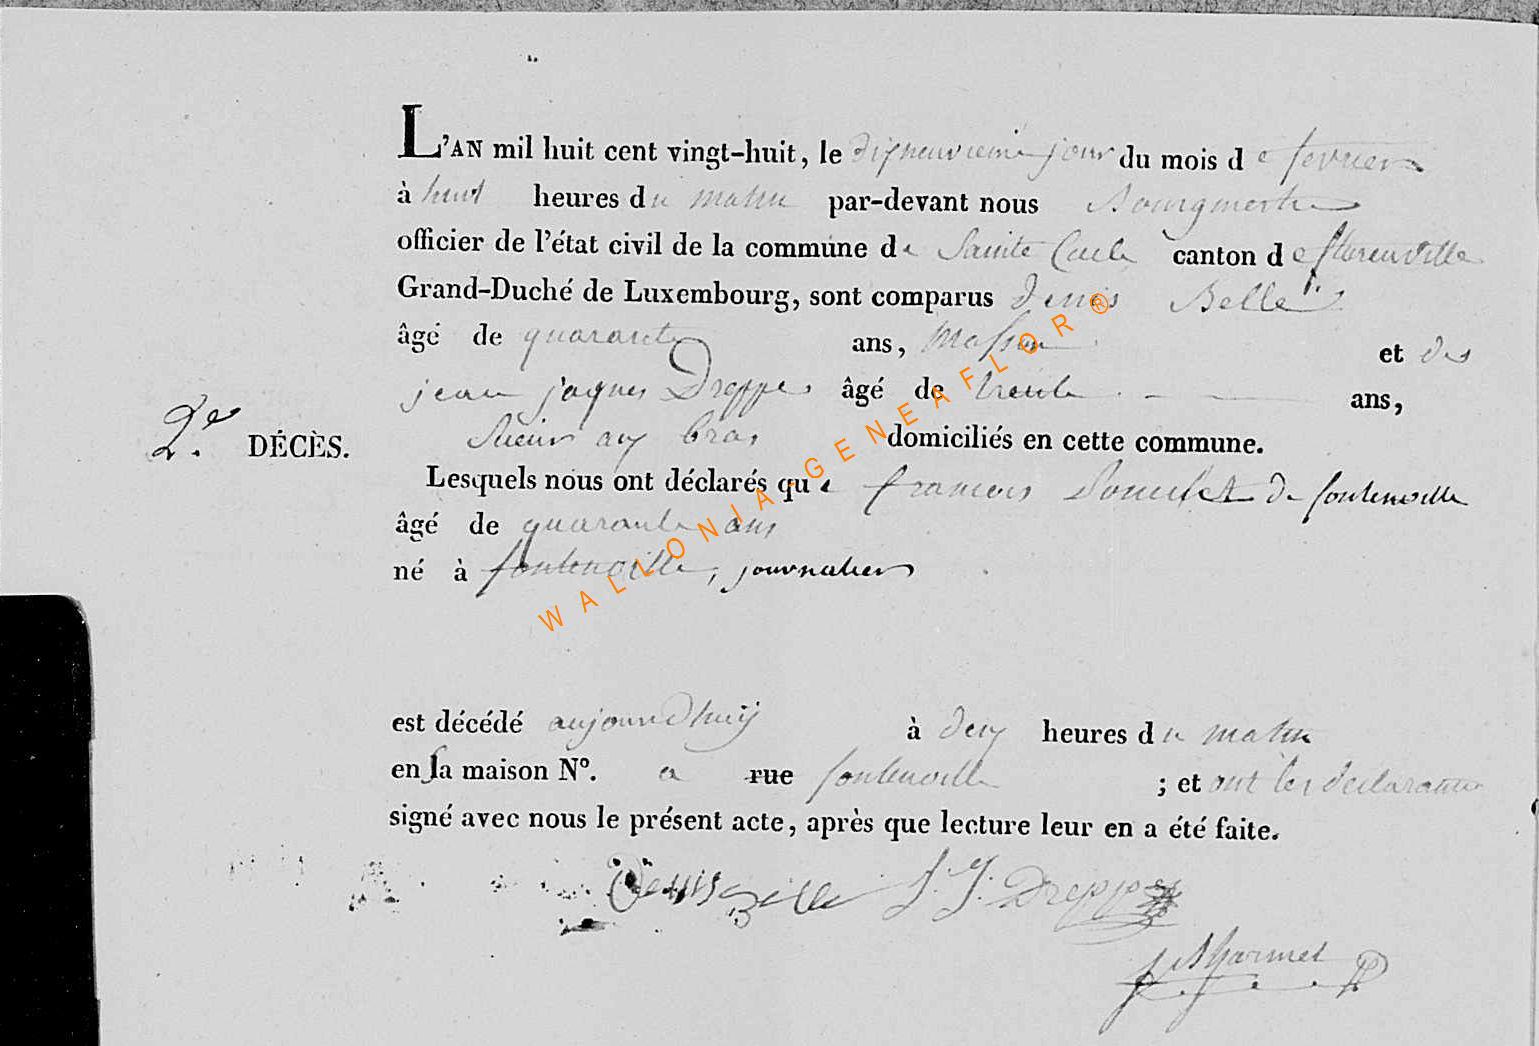 L'AN mil huit cent vingt-huit, le dixneuvieme jour du mois de fevrier
à huit heures du matin par-devant nous Bourgmestre
officier de l'état civil de la commune de Sainte Cecile canton de florenville
Grand-Duché de Luxembourg, sont comparus denis Belle
âgé de quarante ans, masson et des
jean jaques Dreppe âgé de trente ans,
Sieur aux bras domiciliés en cette commune.
2e. DÉCÈS.
Lesquels nous ont déclarés que francois de fontenoille
âgé de quarante ans
né à fontenoille, journalier
est décédé aujourdhuy à deux heures du matin
en la maison N°. a rue fontenoille ; et ont les declarants
signé avec nous le présent acte, après que lecture leur en a été faite.
Denis Belle J. J. Dreppe
WALLONIA-GENEAFLOR®